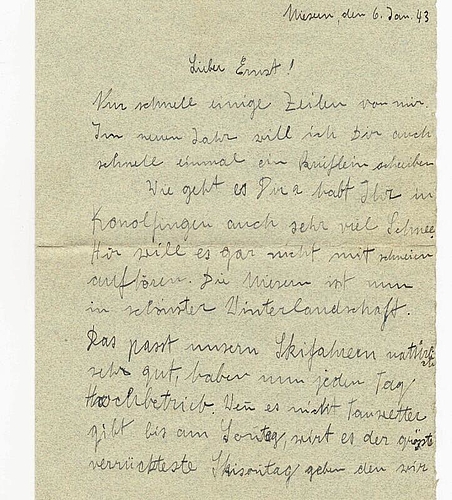 Niesern, den 6. Jan. 43
Lieber Ernst!
Nur schnell einige Zeilen von mir.
Im neuen Jahr will ich Dir auch
schnell einmal ein brieflein schreiben
Wie geht es Dir? habt Ihr in
Konolfingen auch sehr viel Schnee
Hir will es gar nicht mit schneien
aufhören. Die Niesern ist nun
in schönster Winterlandschaft.
Das passt unsern Skifahrern natürli
sehr gut, haben nun jeden Tag
Hochbetrieb. Wen es nicht Tauwetter
gibt bis am Sontag, wirt es der grösste
verrückteste Skisontag geben den wir